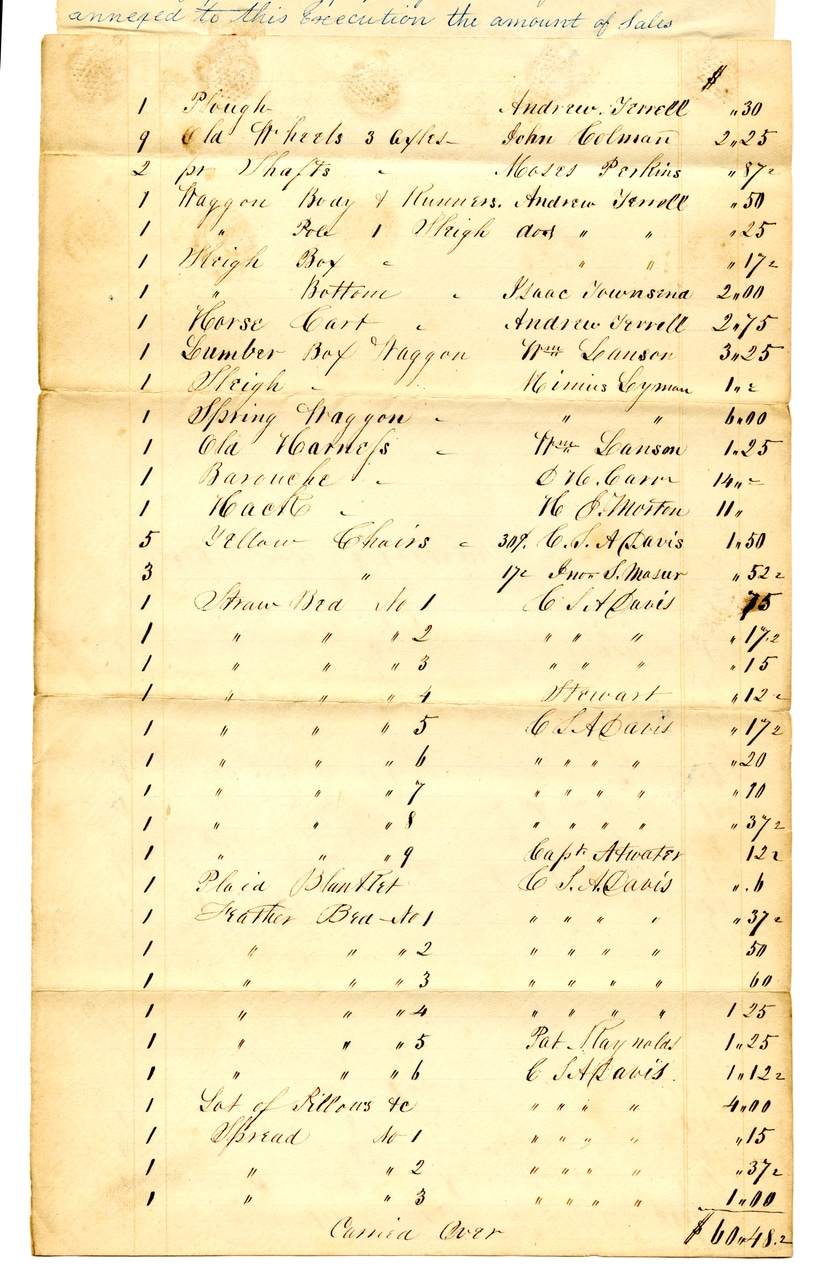 annexed to this Execution the amount of Sales
$
1 Plough Andrew Terrell „30
9 Old Wheels 3 Axles John Colman 2„25
2 pr Shafts „ Moses Perkins „87 2
1 Waggon Body & Runners. Andrew Terrell „50
1 „ Pole 1 Sleigh do „ „ „25
1 Sleigh Box „ „ „ „17 2
1 „ Bottom „ Isaac Townsend 2„00
1 Horse Cart „ Andrew Terrell 2„75
1 Lumber Box Waggon Wm Lanson 3„25
1 Sleigh „ Lyman 1„
1 Spring Waggon „ „ „ 6„00
1 Old Harness „ Wm Lanson 1„25
1 Barouche „ D H. Carr 14„
1 Hack „ H J. Morton 11„
5 Yellow Chairs „ 30¢ C. S. A Davis 1„50
3 „ 17 2 S. „52 2
1 Straw Bed No 1 C S A Davis 75
1 „ „ „ 2 „ „ „ „17 2
1 „ „ „ 3 „ „ „ „15
1 „ „ „ 4 Stewart „12 2
1 „ „ „ 5 C S A Davis „17 2
1 „ „ „ 6 „ „ „ „ „20
1 „ „ „ 7 „ „ „ „ „10
1 „ „ „ 8 „ „ „ „ „37 2
1 „ „ „ 9 Capt Atwater 12 2
1 Plaid Blanket C S. A. Davis „.6
1 Feather Bed No 1 „ „ „ „ „37 2
1 „ „ „ 2 „ „ „ „ 50
1 „ „ „ 3 „ „ „ „ 60
1 „ „ „ 4 „ „ „ „ 1 25
1 „ „ „ 5 Pat Raynolds 1„25
1 „ „ „ 6 C S A Davis. 1„12 2
1 Lot of Pillows &c „ „ „ „ 4„00
1 Spread No 1 „ „ „ „ „15
1 „ „ 2 „ „ „ „ „37 2
1 „ „ 3 „ „ „ „ 1„00
Carried Over $ 60„48.2